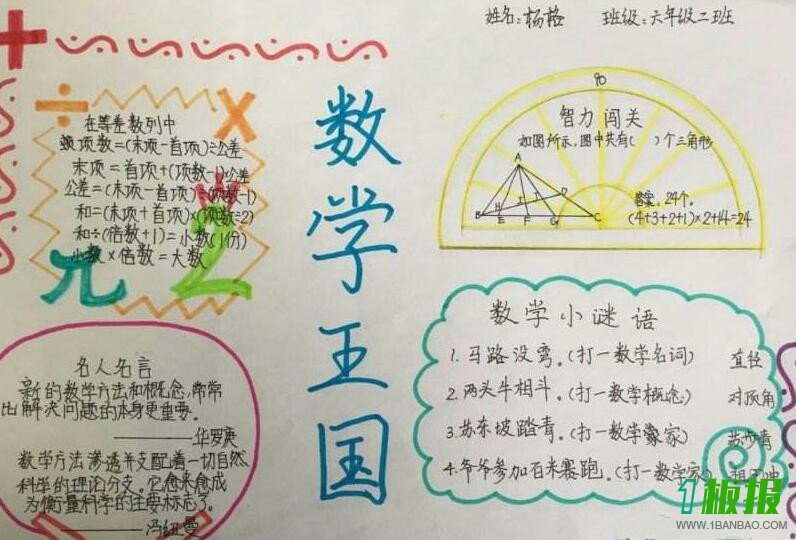 姓名:杨格 班级:六年级二班
数学王国
在等差数列中
项数=(末项-首项)÷公差
末项=首项+(项数-1)公差
公差=(末项-首项)÷(项数-1)
和=(末项+首项)×(项数÷2)
和÷(倍数+1)=小数(1份)
小数×倍数=大数
π
2
90
智力闯关
如图所示,图中共有( )个三角形
A
B E F G C
H I D
答案:24个。
(4+3+2+1)×2+4=24
名人名言
新的数学方法和概念,常常
比解决问题的本身更重要。
——华罗庚
数学方法渗透并支配着一切自然
科学的理论分支。它愈来愈成
为衡量科学的主要标志了。
——冯纽曼
数学小谜语
1.马路没弯。(打一数学名词) 直径
2.两头牛相斗。(打一数学概念) 对顶角
3.苏东坡踏青。(打一数学家) 苏步青
4.爷爷参加百米赛跑。(打一数学家) 祖冲
1板报
WWW.1BANBAO.COM